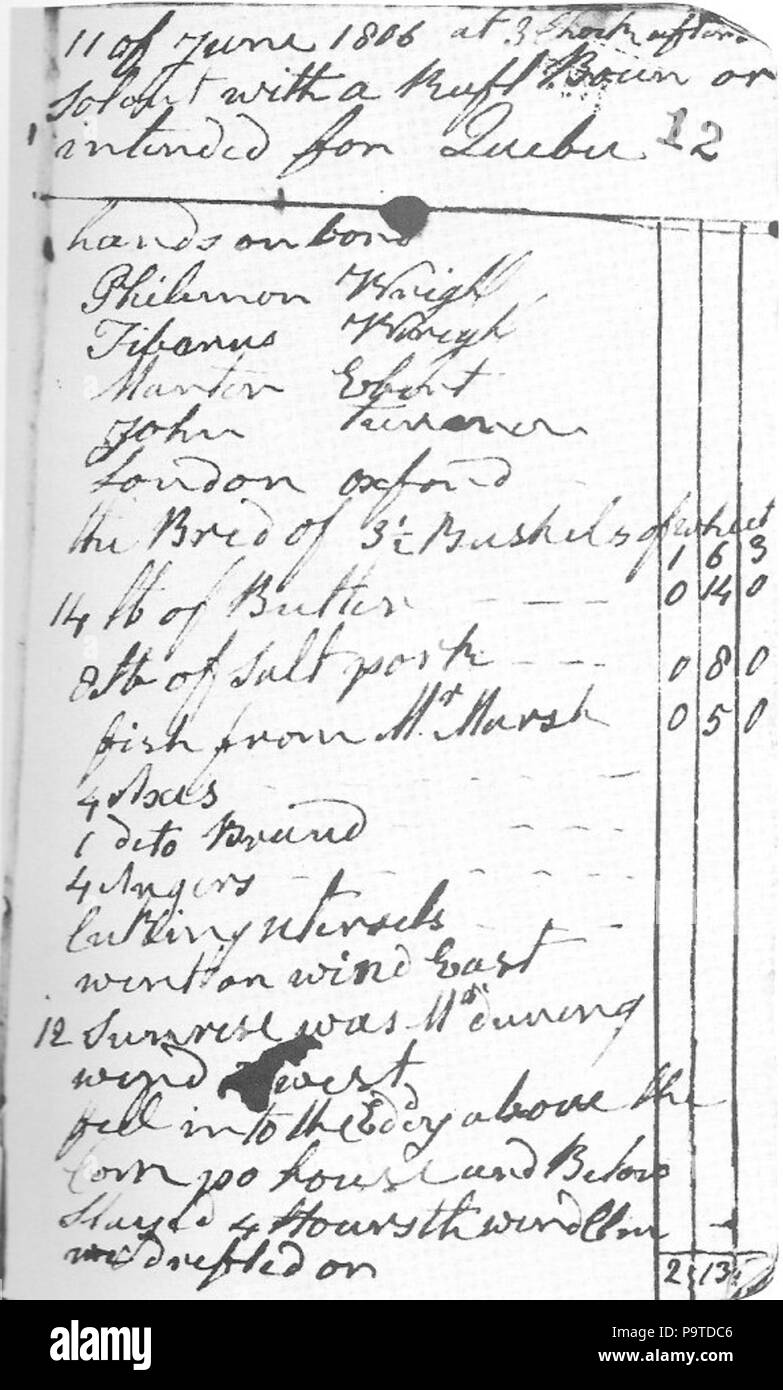 11 of June 1806 at 3 Clock aftern
Solout with a Raft Boun or
intended for Quebec 12
hands on bord
Philemon Wrigh
Tibarus Wrigh
Marten Ebert
John Turrener
London oxford
the Bred of 3½ Bushels of wheet
1 6 3
14 lb of Butter 0 14 0
8 lb of Salt pork 0 8 0
fish from Mr Marsh 0 5 0
4 Axes
1 deto Braud
4 Augers
Cutling utersels
went on wind East
12 Sunrise was Mr duning
wind west
fell into the Eddy above the
Corn po house and Below
Stayed 4 Hours th wind
we drefted on
2 13
alamy
Image ID: P9TDC6
www.alamy.com